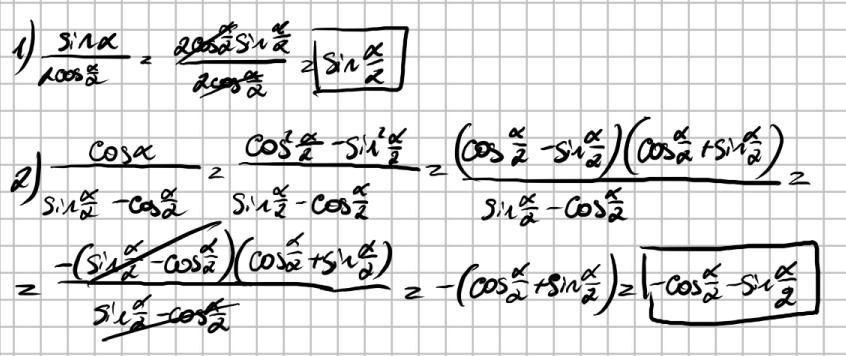 1) sinα / 2cos α/2 = 2cos α/2 sin α/2 / 2cos α/2 = sin α/2
2) cosα / sin α/2 - cos α/2 = cos² α/2 - sin² α/2 / sin α/2 - cos α/2 = (cos α/2 - sin α/2)(cos α/2 + sin α/2) / sin α/2 - cos α/2 =
= -(sin α/2 - cos α/2)(cos α/2 + sin α/2) / sin α/2 - cos α/2 = -(cos α/2 + sin α/2) = -cos α/2 - sin α/2